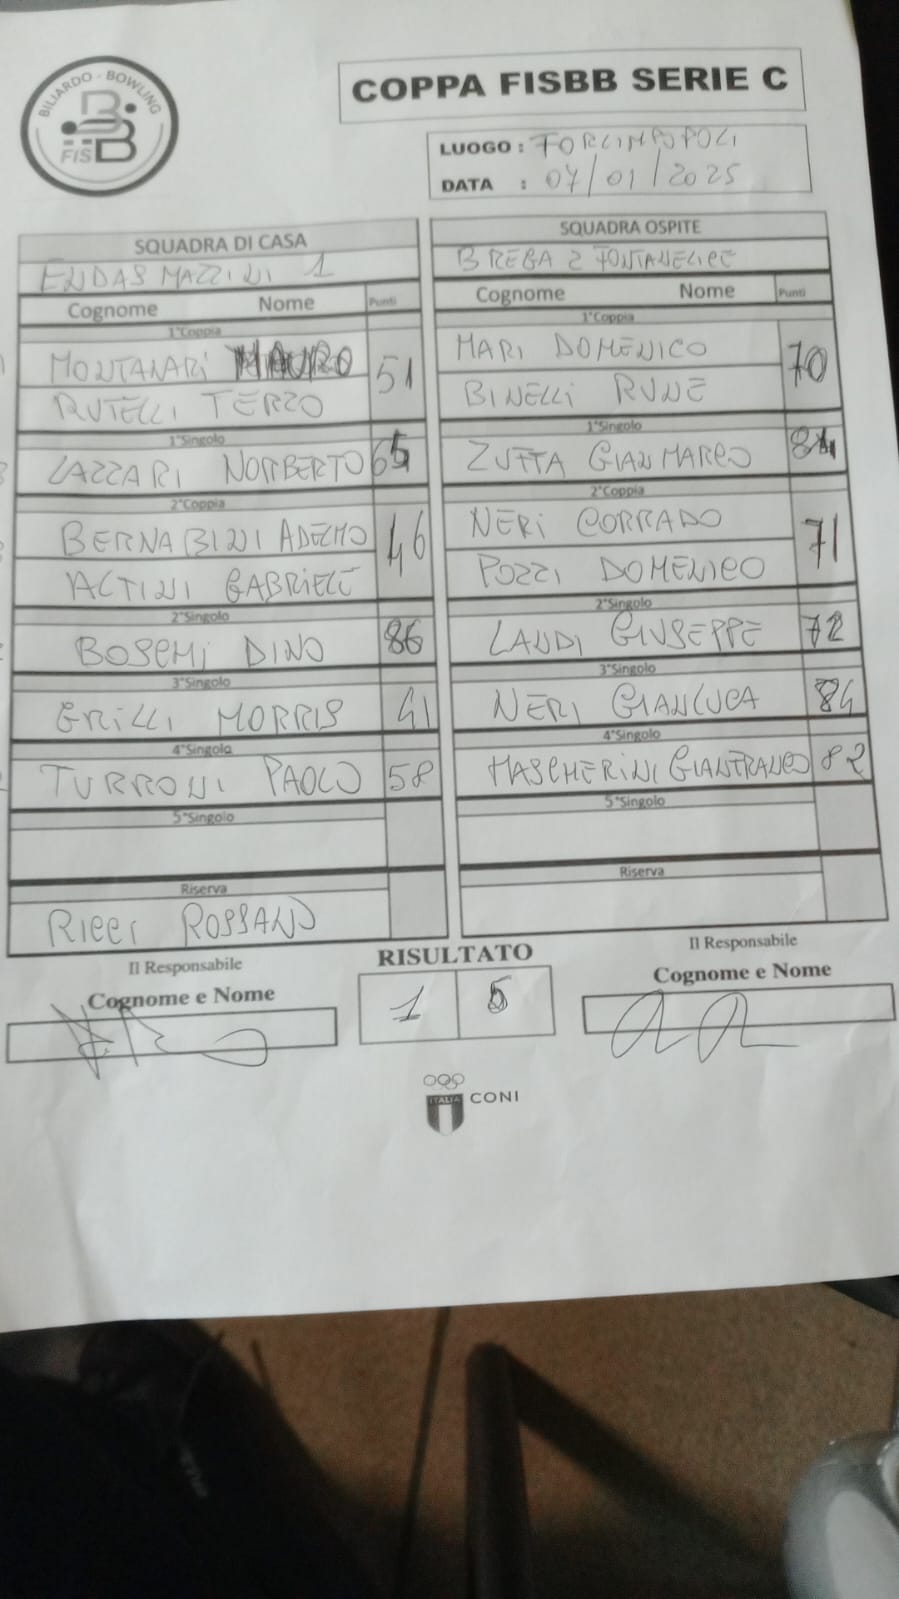 BILIARDO - BOWLING
FISBB
COPPA FISBB SERIE C
LUOGO : FORLIMPOPOLI
DATA : 07/01/2025
SQUADRA DI CASA
ENDAS MAZZINI 1
Cognome Nome Punti
1°Coppia
MONTANARI MAURO 51
RUTELLI TERZO
1°Singolo
LAZZARI NORBERTO 65
2°Coppia
BERNABINI ADELMO 46
ALTINI GABRIELE
2°Singolo
BOSCHI DINO 86
3°Singolo
GRILLI MORRIS 41
4°Singolo
TURRONI PAOLO 58
5°Singolo
Riserva
RICCI ROSSANO
Il Responsabile
Cognome e Nome
SQUADRA OSPITE
BREBA 2 FONTANELICE
Cognome Nome Punti
1°Coppia
MARI DOMENICO 70
BINELLI RUNE
1°Singolo
ZUFFA GIANMARCO
2°Coppia
NERI CORRADO 71
POZZI DOMENICO
2°Singolo
LANDI GIUSEPPE 72
3°Singolo
NERI GIANLUCA 84
4°Singolo
MASCHERINI GIANFRANCO 82
5°Singolo
Riserva
Il Responsabile
Cognome e Nome
RISULTATO
1 5
ITALIA
CONI